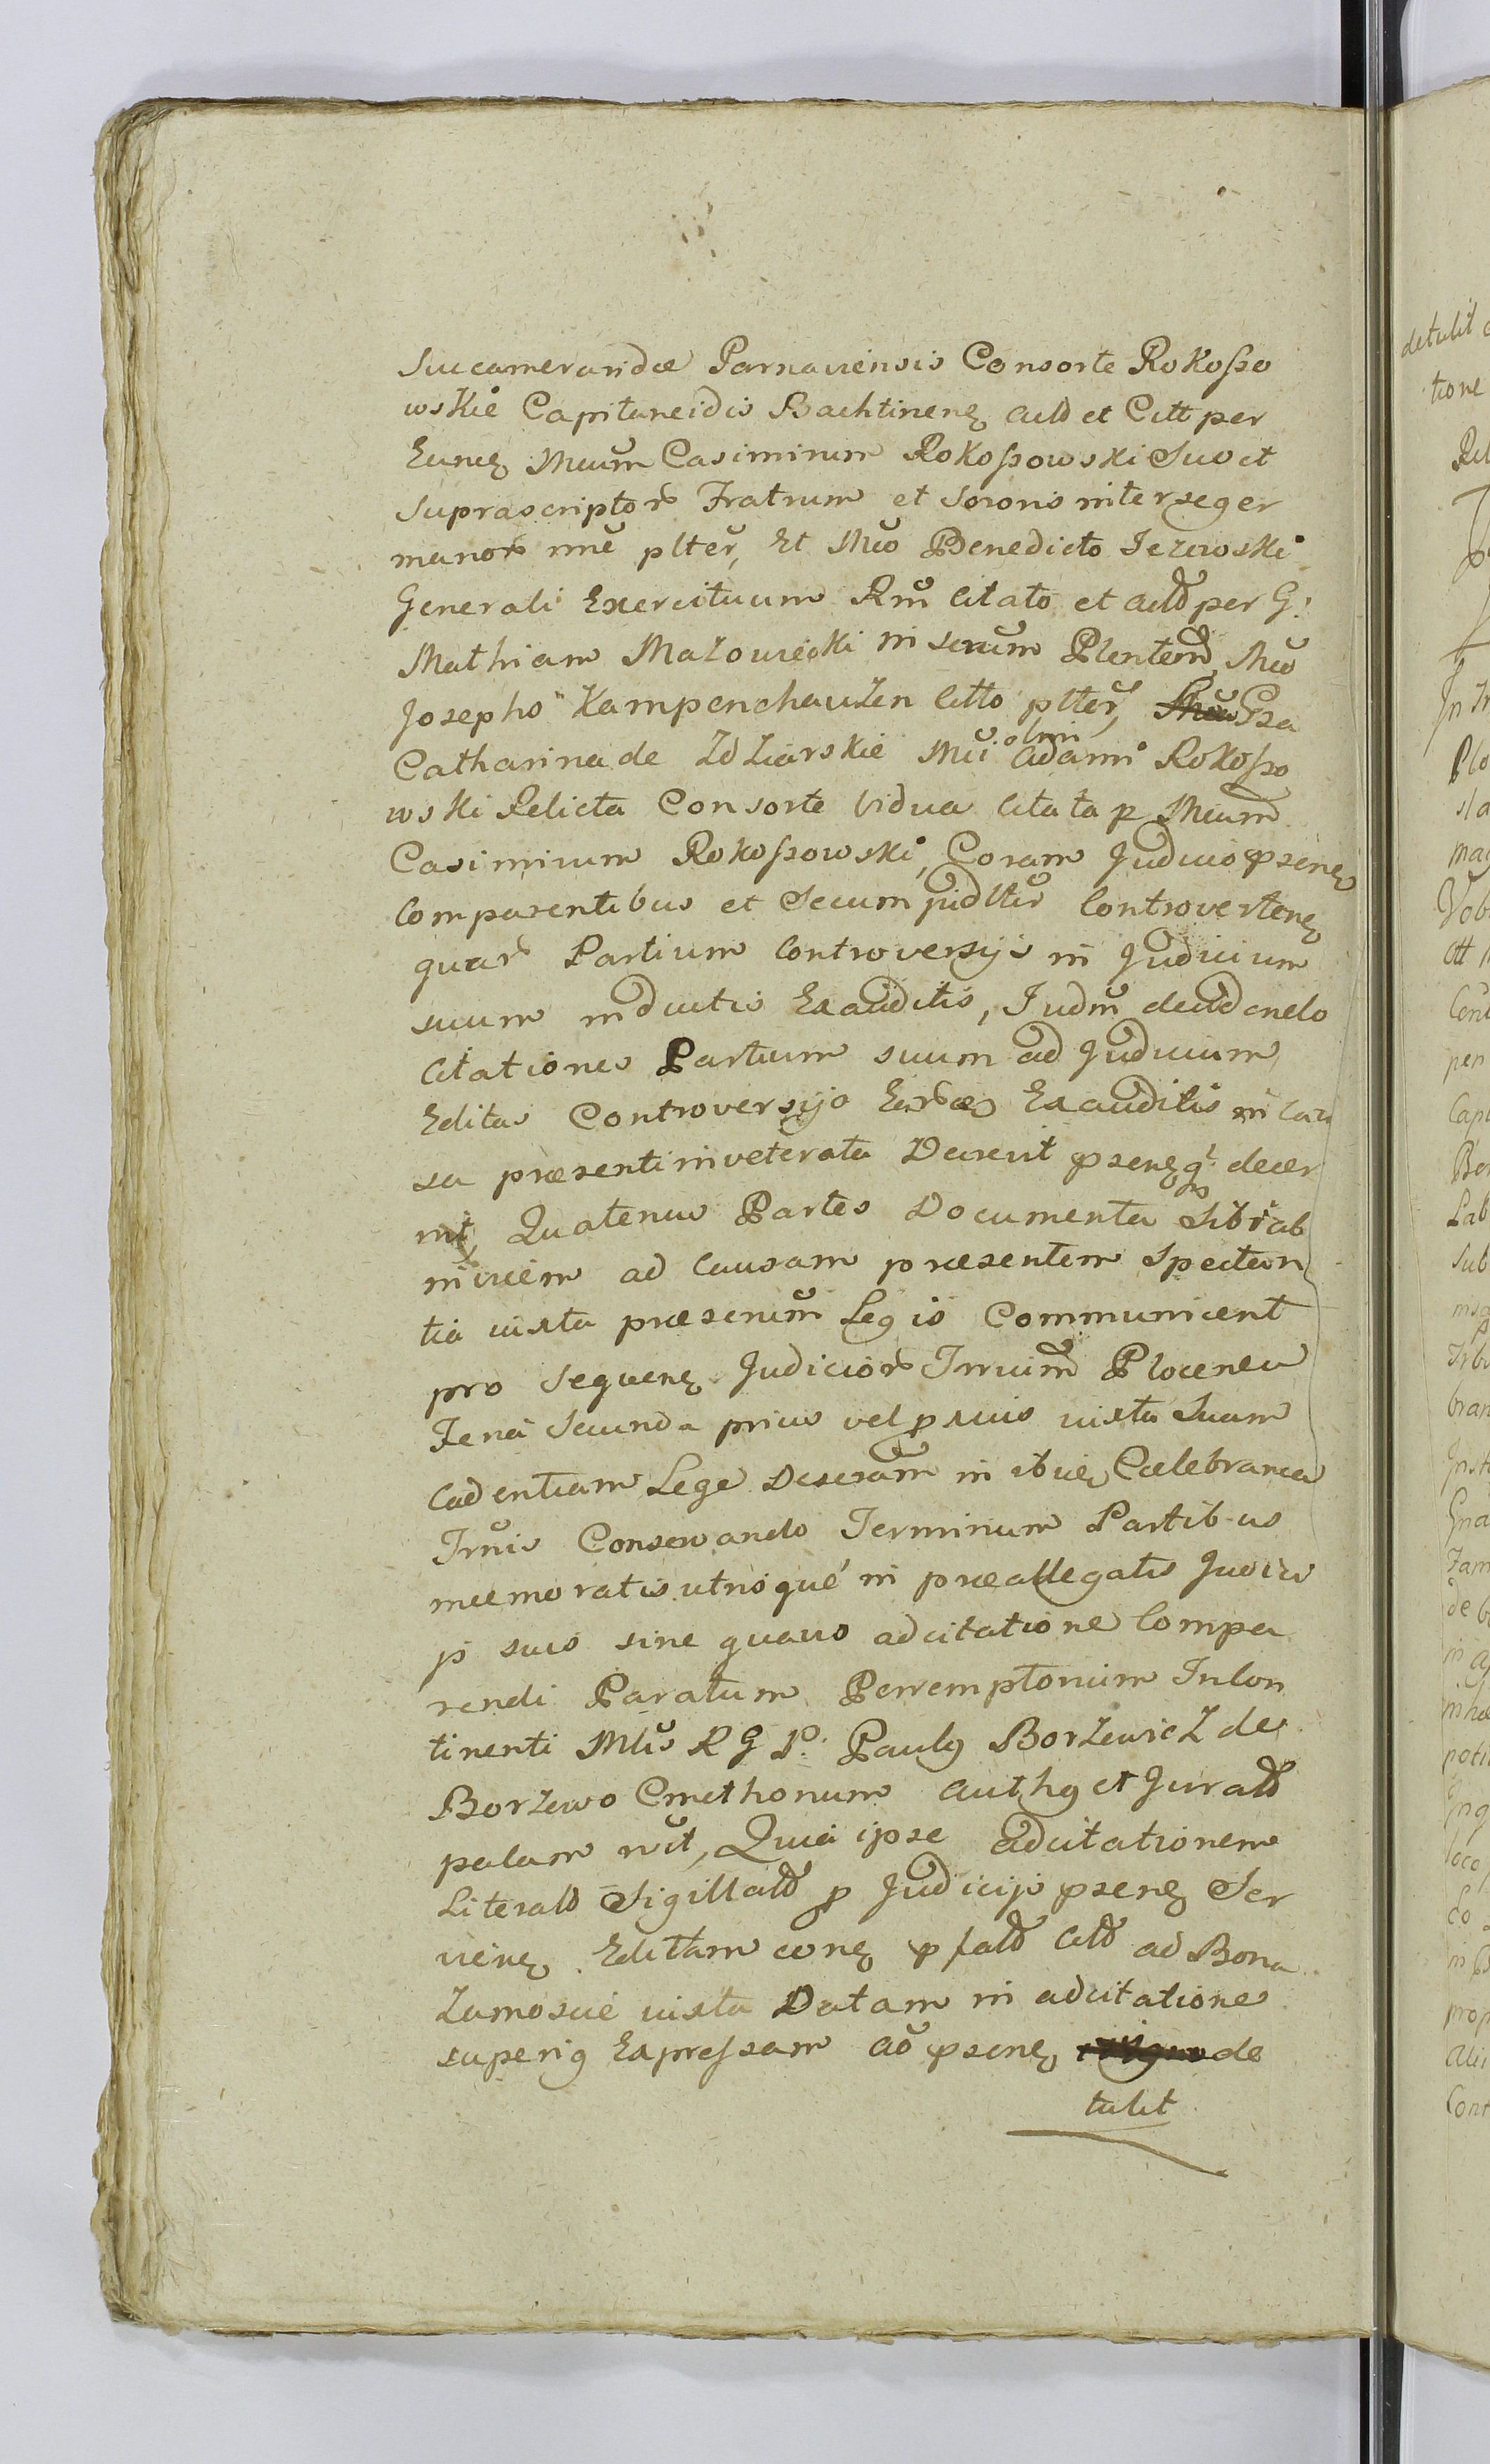 Succameraridæ Parnaviensis Consorte Rokoßo
wskie Capitaneidis Bachtinenȩ actō et Citt per
Eunȩ Mcum Casimirum Rokoßowski Suo et
Suprascriptor Fratrum et Sororis interseger
manor nne plter, Et Mco Benedicto Jezewski
Generali Exercituum Rm Citato et actō per G:
Mathiam Mazowiecki in serum Plentem, Mco
Josepho Kampenchauzen Citto plter,  Gsa
Catharina de Zdziarskie Mci olim Adami Rokoßo
wski Relicta Consorte Vidua Citata p Mcum
Casimirum Rokoßowski, Coram Judicio psenȩ
Comparentibus et Secum judltr Controvertenȩ
quar Partium Controversijs in Judicium
suum inductis Exauditis, Judm decidendo
Citationes Partium suum ad Judicium
Editas Controversijs Exauditis in Cau
sa præsenti inveterata Decrevit psenȩ q: decer
nit, Quatenus Partes Documenta Sibi ab
invicem ad Causam præsentem Spectan
tia iuxta præserum Legis Communicent
pro Sequenȩ Judicior Trruim Plocenȩ
Feria Secunda prius vel pxius iuxta Suam
Cadentiam Lege Deseram in ibiȩ Cælebranda
Trnis Conservando Terminum Partibus
memoratis utrisqué in præallegatis Judici
js suis sine quavis adcitatione Compa
rendi Paratum Peremptorium Incon
tinenti Mlis R G P: Paulg Borzewicz de
Borzewo Cmethonum authg et Jurattō
palam rvit, Quia ipse adcitationem
Literalō Sigillatō p Judicijs psenȩ Ser
vienȩ Editam eonȩ pfatō Citō ad Bona
Zamoscie iuxta Datam in adcitatione
superig Expreßam ad psenȩ de
tulit